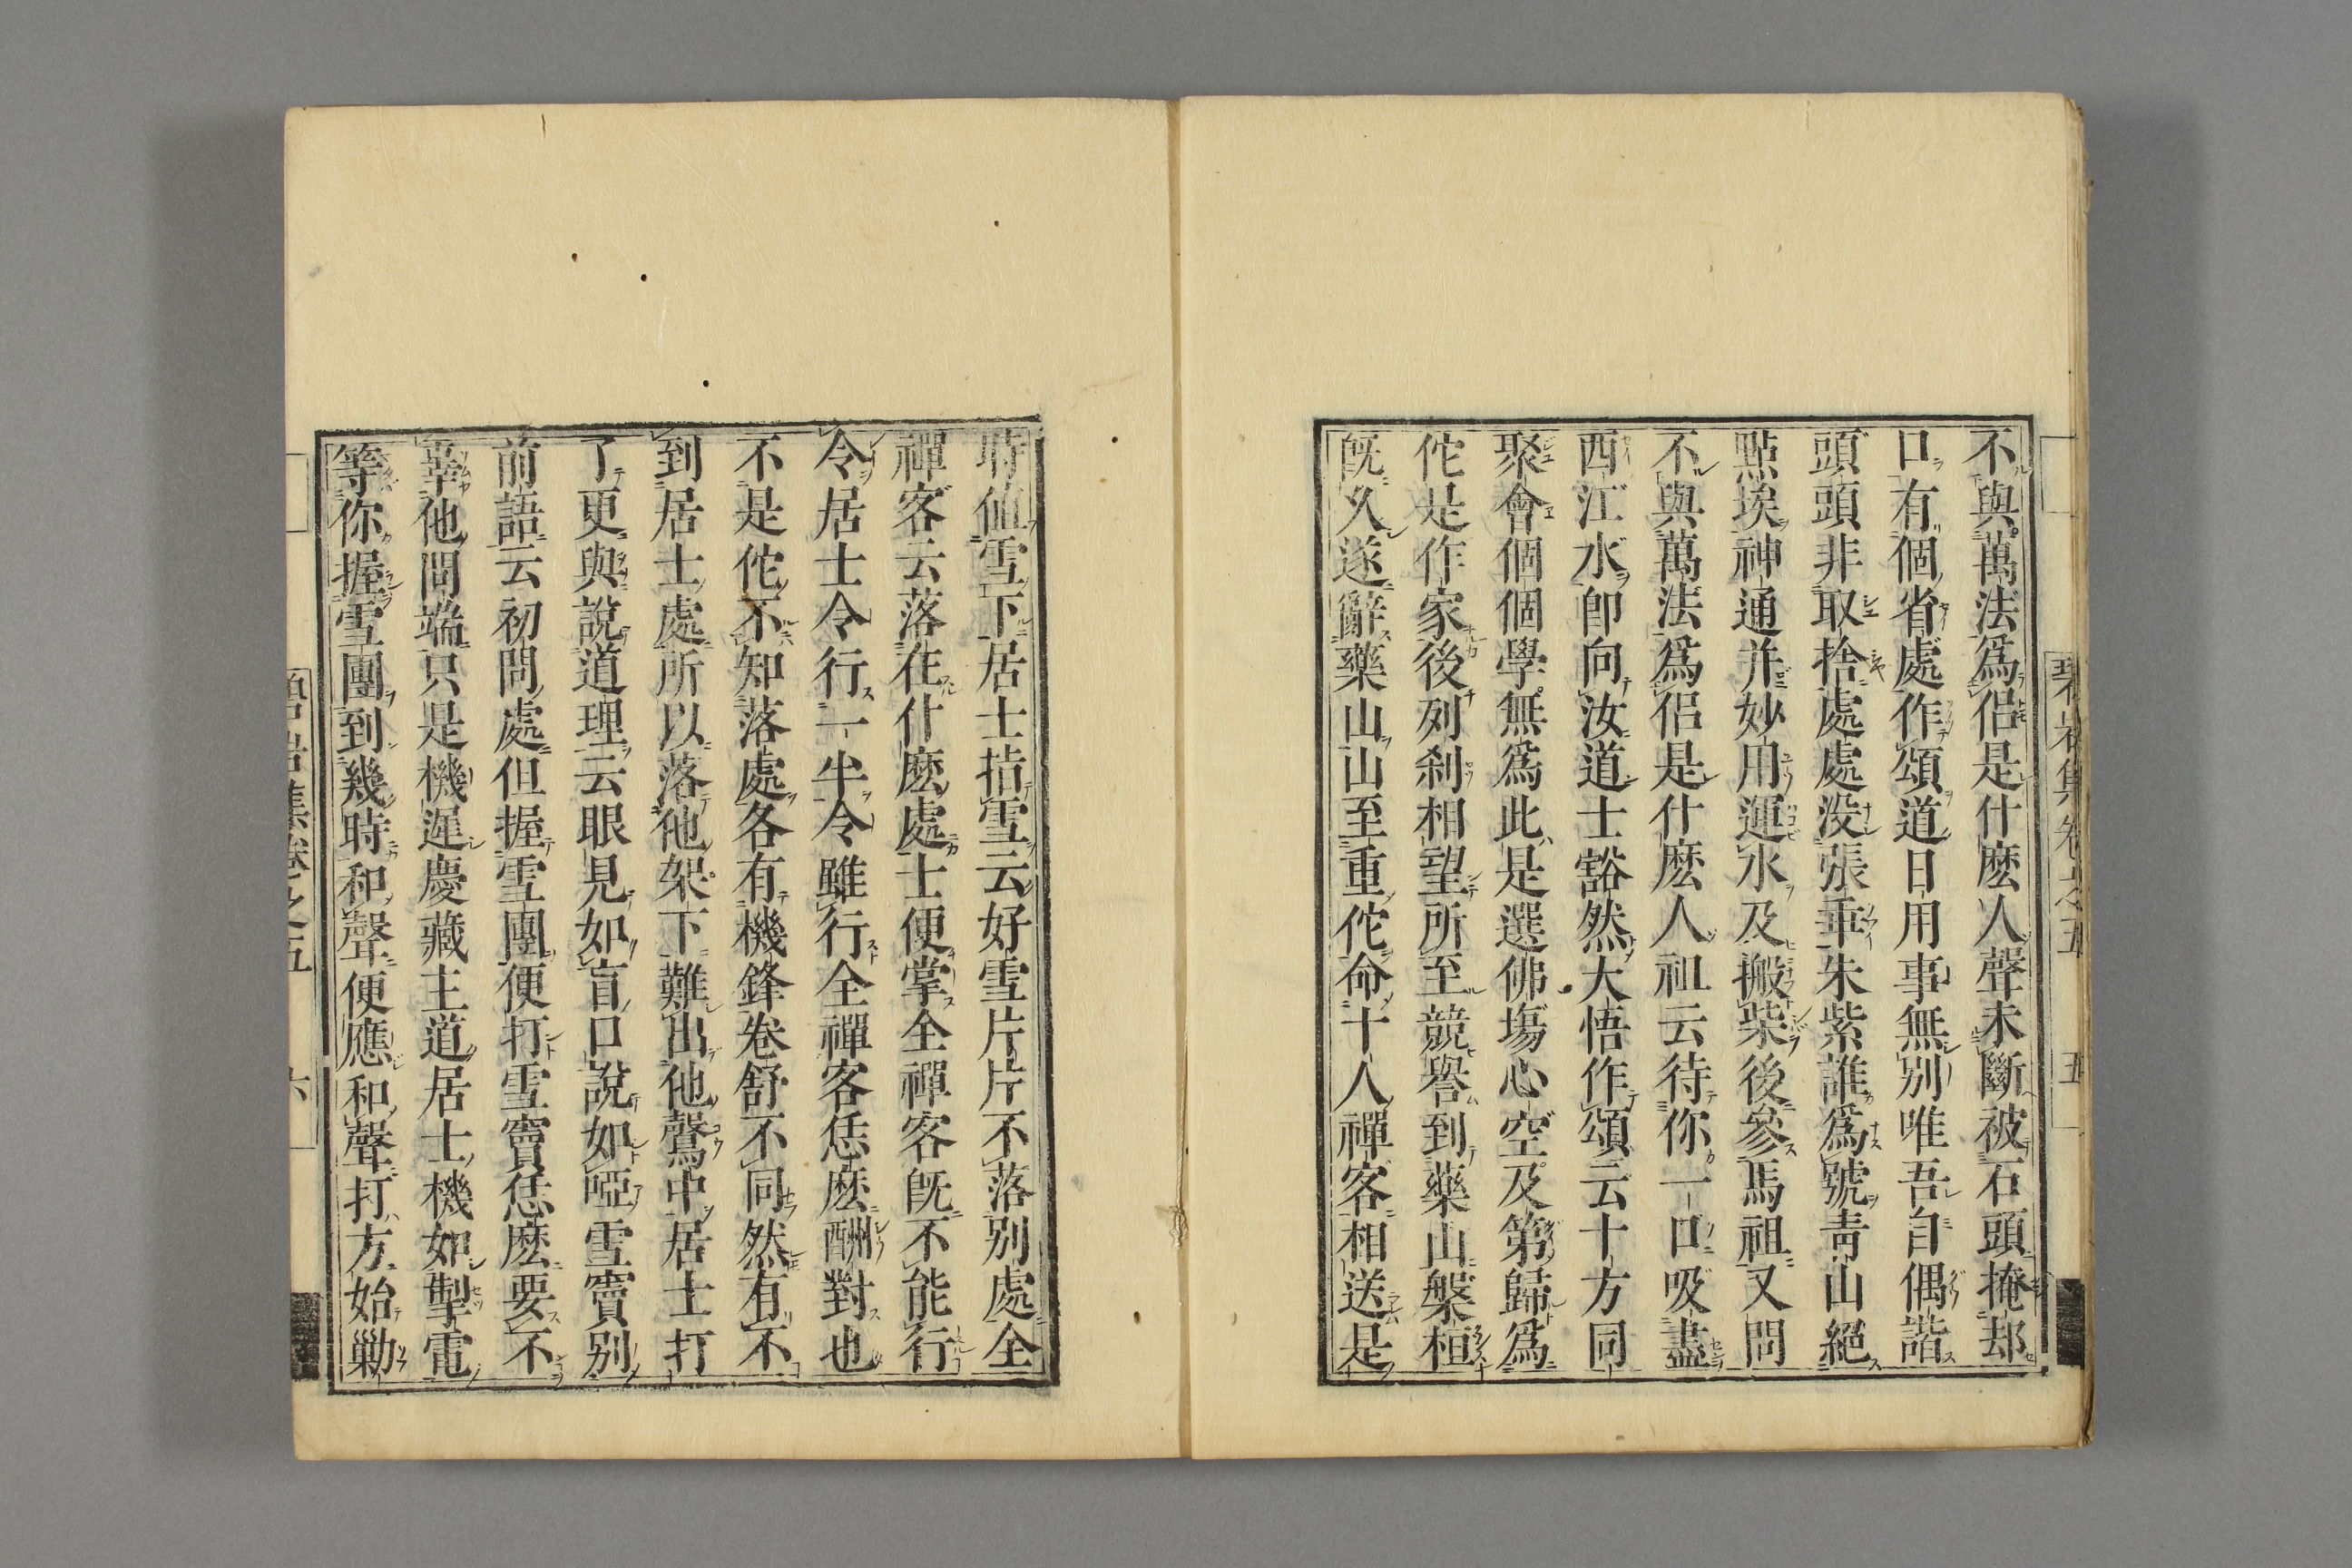 不與萬法爲侶是什麽人聲未斷被石頭掩却
口有個省處作頌道日用事無別唯吾自偶諧
頭頭非取捨處處没張乖朱紫誰爲號靑山絕
點埃神通并妙用運水及搬柴後參馬祖又問
不與萬法爲侶是什麽人祖云待你一口吸盡
西江水卽向汝道士豁然大悟作頌云十方同
聚會個個學無爲此是選佛塲心空及第歸爲
佗是作家後列刹相望所至競譽到藥山槃桓
旣久遂辭藥山山至重佗命十人禪客相送是
時値雪下居士指雪云好雪片片不落別處全
禪客云落在什麽處士便掌全禪客旣不能行
令居士令行一半令雖行全禪客恁麽酬對也
不是佗不知落處各有機鋒卷舒不同然有不
到居士處所以落他架下難出他鷇中居士打
了更與說道理云眼見如盲口說如啞雪竇別
前語云初問處但握雪團便打雪竇恁麽要不
辜他問端只是機遲慶藏主道居士機如掣電
等你握雪團到幾時和聲便應和聲打方始勦
碧岩集卷之五 五
碧岩集卷之五 六